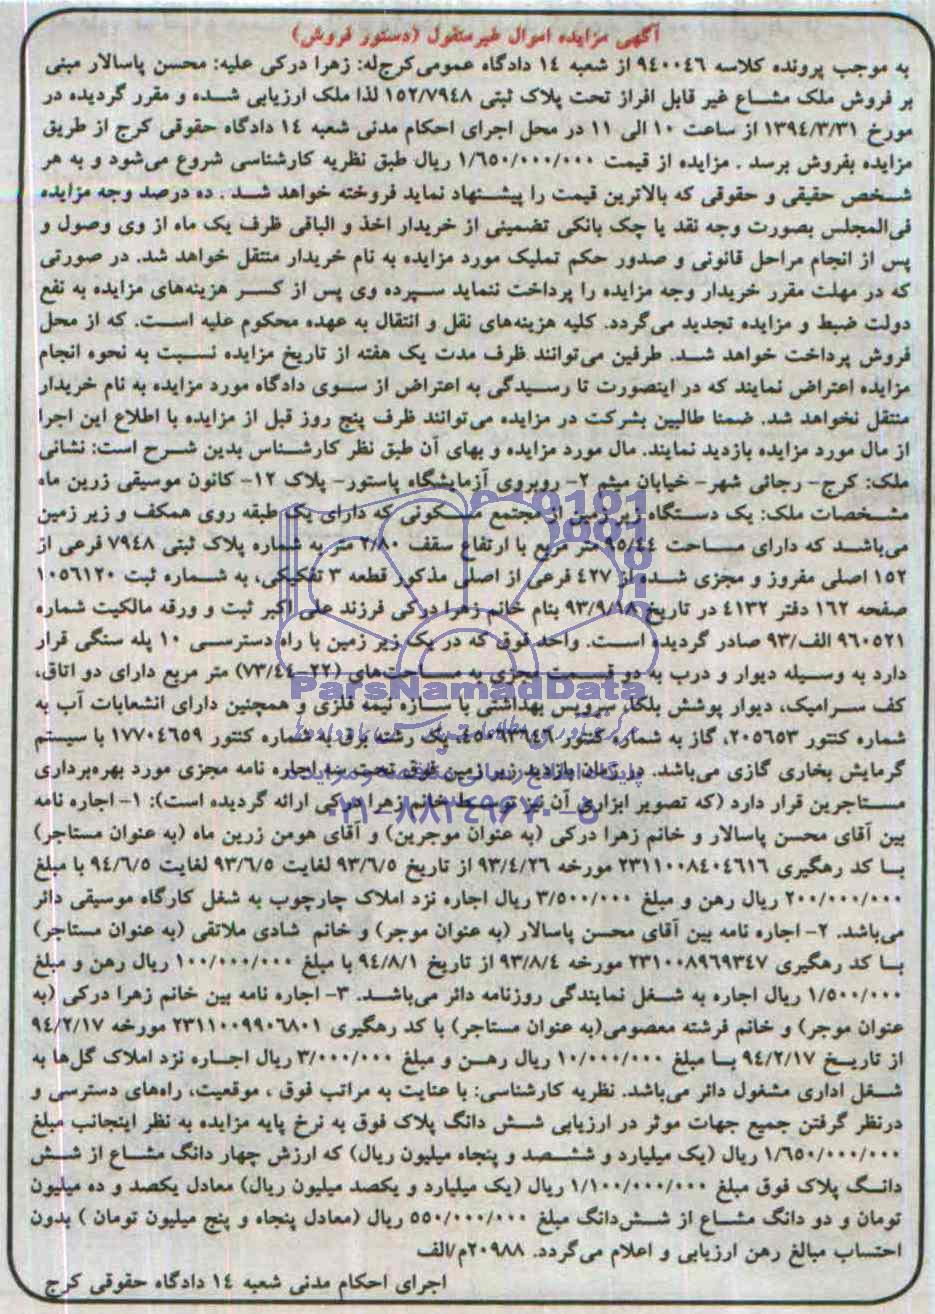 آگهی مزایده اموال غیرمنقول (دستور فروش)
به موجب پرونده کلاسه ۹۴۰۰۴۶ از شعبه ۱۴ دادگاه عمومی‌کرج‌له: زهرا درکی علیه: محسن پاسالار مبنی
بر فروش ملک مشاع غیر قابل افراز تحت پلاک ثبتی ۱۵۲/۷۹۴۸ لذا ملک ارزیابی شده و مقرر گردیده در
مورخ ۱۳۹۴/۳/۳۱ از ساعت ۱۰ الی ۱۱ در محل اجرای احکام مدنی شعبه ۱۴ دادگاه حقوقی کرج از طریق
مزایده بفروش برسد . مزایده از قیمت ۱/۶۵۰/۰۰۰/۰۰۰ ریال طبق نظریه کارشناسی شروع می‌شود و به هر
شخص حقیقی و حقوقی که بالاترین قیمت را پیشنهاد نماید فروخته خواهد شد . ده درصد وجه مزایده
فی‌المجلس بصورت وجه نقد یا چک بانکی تضمینی از خریدار اخذ و الباقی ظرف یک ماه از وی وصول و
پس از انجام مراحل قانونی و صدور حکم تملیک مورد مزایده به نام خریدار منتقل خواهد شد. در صورتی
که در مهلت مقرر خریدار وجه مزایده را پرداخت ننماید سپرده وی پس از کسر هزینه‌های مزایده به نفع
دولت ضبط و مزایده تجدید می‌گردد. کلیه هزینه‌های نقل و انتقال به عهده محکوم علیه است. که از محل
فروش پرداخت خواهد شد. طرفین می‌توانند ظرف مدت یک هفته از تاریخ مزایده نسبت به نحوه انجام
مزایده اعتراض نمایند که در اینصورت تا رسیدگی به اعتراض از سوی دادگاه مورد مزایده به نام خریدار
منتقل نخواهد شد. ضمنا طالبین بشرکت در مزایده می‌توانند ظرف پنج روز قبل از مزایده با اطلاع این اجرا
از مال مورد مزایده بازدید نمایند. مال مورد مزایده و بهای آن طبق نظر کارشناس بدین شرح است: نشانی
ملک: کرج- رجائی شهر- خیابان میثم ۲- روبروی آزمایشگاه پاستور- پلاک ۱۲- کانون موسیقی زرین ماه
مشخصات ملک: یک دستگاه زیرزمین از مجتمع مسکونی که دارای یک طبقه روی همکف و زیر زمین
می‌باشد که دارای مساحت ۹۵/۴۴ متر مربع با ارتفاع سقف ۲/۸۰ متر به شماره پلاک ثبتی ۷۹۴۸ فرعی از
۱۵۲ اصلی مفروز و مجزی شده از ۴۲۷ فرعی از اصلی مذکور قطعه ۳ تفکیکی، به شماره ثبت ۱۰۵۶۱۲۰
صفحه ۱۶۲ دفتر ۴۱۳۲ در تاریخ ۹۳/۹/۱۸ بنام خانم زهرا درکی فرزند علی اکبر ثبت و ورقه مالکیت شماره
۹۶۰۵۲۱ الف/۹۳ صادر گردیده است. واحد فوق که در یک زیر زمین با راه دسترسی ۱۰ پله سنگی قرار
دارد به وسیله دیوار و درب به دو قسمت مجزی به مساحت‌های (۲۲-۷۳/۴۴) متر مربع دارای دو اتاق،
کف سرامیک، دیوار پوشش بلکا، سرویس بهداشتی با سازه نیمه فلزی و همچنین دارای انشعابات آب به
شماره کنتور ۲۰۵۶۵۳، گاز به شماره کنتور یک رشته برق به شماره کنتور ۱۷۷۰۴۶۵۹ با سیستم
گرمایش بخاری گازی می‌باشد. در زمان بازدید زیر زمین فوق تحت سه اجاره نامه مجزی مورد بهره‌برداری
مستاجرین قرار دارد (که تصویر ابزاری آن نیز توسط خانم زهرا درکی ارائه گردیده است): ۱- اجاره نامه
بین آقای محسن پاسالار و خانم زهرا درکی (به عنوان موجرین) و آقای هومن زرین ماه (به عنوان مستاجر)
با کد رهگیری ۲۳۱۱۰۰۸۴۰۴۶۱۶ مورخه ۹۳/۴/۲۶ از تاریخ ۹۳/۶/۵ لغایت ۹۳/۶/۵ لغایت ۹۴/۶/۵ با مبلغ
۲۰۰/۰۰۰/۰۰۰ ریال رهن و مبلغ ۳/۵۰۰/۰۰۰ ریال اجاره نزد املاک چارچوب به شغل کارگاه موسیقی دائر
می‌باشد. ۲- اجاره نامه بین آقای محسن پاسالار (به عنوان موجر) و خانم شادی ملاتقی (به عنوان مستاجر)
با کد رهگیری ۲۳۱۰۰۸۹۶۹۳۴۷ مورخه ۹۳/۸/۴ از تاریخ ۹۴/۸/۱ با مبلغ ۱۰۰/۰۰۰/۰۰۰ ریال رهن و مبلغ
۱/۵۰۰/۰۰۰ ریال اجاره به شغل نمایندگی روزنامه دائر می‌باشد. ۳- اجاره نامه بین خانم زهرا درکی (به
عنوان موجر) و خانم فرشته معصومی(به عنوان مستاجر) با کد رهگیری ۲۳۱۱۰۰۹۹۰۶۸۰۱ مورخه ۹۴/۲/۱۷
از تاریخ ۹۴/۲/۱۷ با مبلغ ۱۰/۰۰۰/۰۰۰ ریال رهن و مبلغ ۳/۰۰۰/۰۰۰ ریال اجاره نزد املاک گل‌ها به
شغل اداری مشغول دائر می‌باشد. نظریه کارشناسی: با عنایت به مراتب فوق ، موقعیت، راه‌های دسترسی و
درنظر گرفتن جمیع جهات موثر در ارزیابی شش دانگ پلاک فوق به نرخ پایه مزایده به نظر اینجانب مبلغ
۱/۶۵۰/۰۰۰/۰۰۰ ریال (یک میلیارد و ششصد و پنجاه میلیون ریال) که ارزش چهار دانگ مشاع از شش
دانگ پلاک فوق مبلغ ۱/۱۰۰/۰۰۰/۰۰۰ ریال (یک میلیارد و یکصد میلیون ریال) معادل یکصد و ده میلیون
تومان و دو دانگ مشاع از شش‌دانگ مبلغ ۵۵۰/۰۰۰/۰۰۰ ریال (معادل پنجاه و پنج میلیون تومان ) بدون
احتساب مبالغ رهن ارزیابی و اعلام می‌گردد. ۲۰۹۸۸/م/الف
اجرای احکام مدنی شعبه ۱۴ دادگاه حقوقی کرج
ParsNamadData
۰۲۱-۸۸۳۴۹۶۷۰-۵